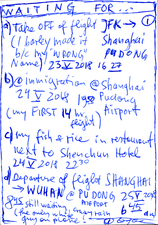 WAITING FOR...
a) Take OFF of flight JFK →
(I barely made it Shanghai
b/c my "WRONG" PUDONG
Name) 23 V 2018 16 27
b) @ immigration @ Shanghai
24 V 2018 Pudong
(my FIRST 14 hrs Airport
flight)
c) my fish & rice in restaurant
next to Shenchun Hotel
24 V 2018 2230
d) Departure of flight SHANGHAI
→ WUHAN @ PUDONG 25 V 2018
845 still waiting AIRPORT 645
(the only